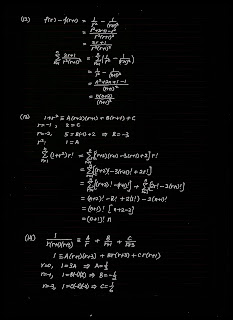 (12) f(r) - f(r+1) = 1/r² - 1/(r+1)²
= (r²+2r+1 - r²)/(r²(r+1)²)
= (2r+1)/(r²(r+1)²)
Σ (2r+1)/(r²(r+1)²) = Σ (1/r² - 1/(r+1)²)
= 1/1² - 1/(n+1)²
= (n²+2n+1-1)/(n+1)²
= n(n+2)/(n+1)²
1+r² ≡ A(r+2)(r+1) + B(r+1) + C
r=-1, 2 = C
r=-2, 5 = B(-1)+2 ⇒ B=-3
r², 1 = A
Σ (1+r²) r! = Σ [(r+2)(r+1) - 3(r+1) + 2] r!
= Σ [(r+2)! - 3(r+1)! + 2r!]
= Σ [(r+2)! - (r+1)!] + Σ [2r! - 2(r+1)!]
= (n+2)! - 2! + 2(1)! - 2(n+1)!
= (n+1)! [n+2-2]
= (n+1)! n
1/(r(r+1)(r+3)) ≡ A/r + B/(r+1) + C/(r+3)
1 ≡ A(r+1)(r+3) + Br(r+3) + Cr(r+1)
r=0, 1=3A ⇒ A=1/3
r=-1, 1=B(-1)(2) ⇒ B=-1/2
r=-3, 1=C(-3)(-2) ⇒ C=1/6